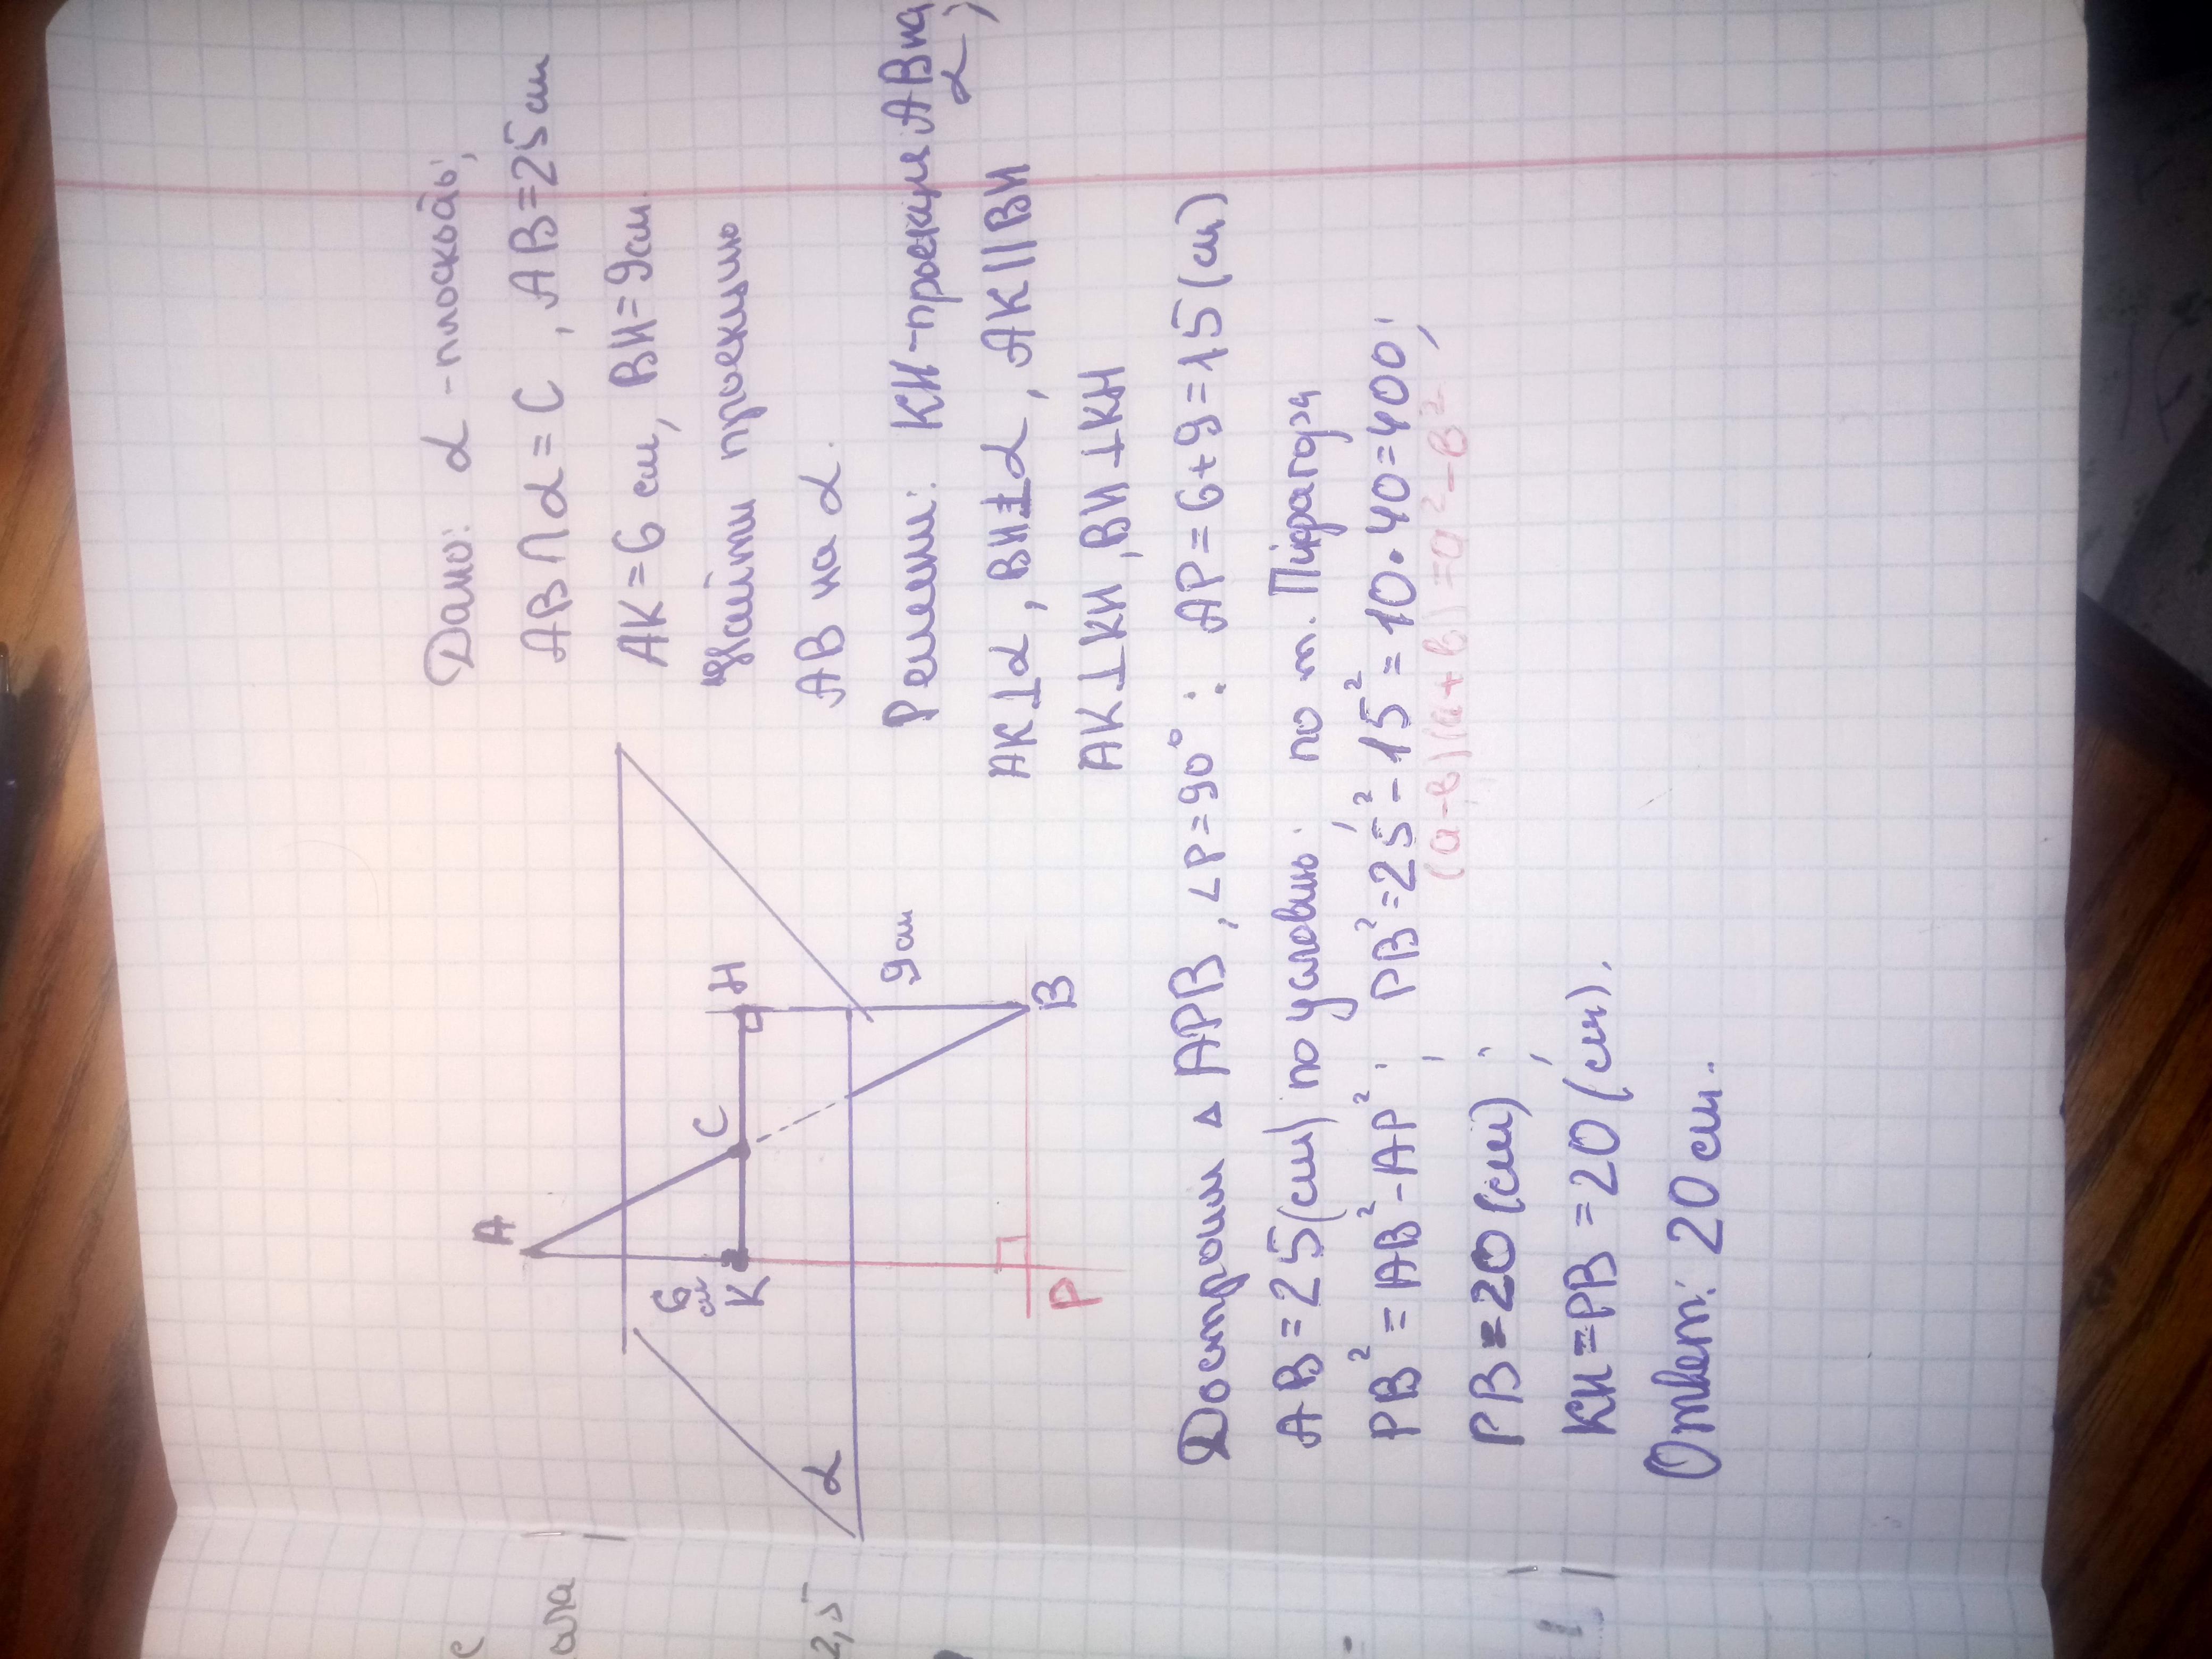 Дано: α - плоскость;
AB ∩ α = C, AB = 25 см
AK = 6 см, BH = 9 см.
Найти проекцию
AB на α.
Решени: KH - проекция AB на α;
AK ⊥ α, BH ⊥ α, AK || BH
AK ⊥ KH, BH ⊥ KH
A
6 см
K
C
H
9 см
B
P
α
Достроим △ APB, ∠P = 90°: AP = 6 + 9 = 15 (см)
AB = 25 (см) по условию; по т. Піфагора
PB² = AB² - AP²; PB² = 25² - 15² = 10 · 40 = 400;
(a - b)(a + b) = a² - b²
PB = 20 (см);
KH = PB = 20 (см).
Ответ: 20 см.
с
ала
2,5